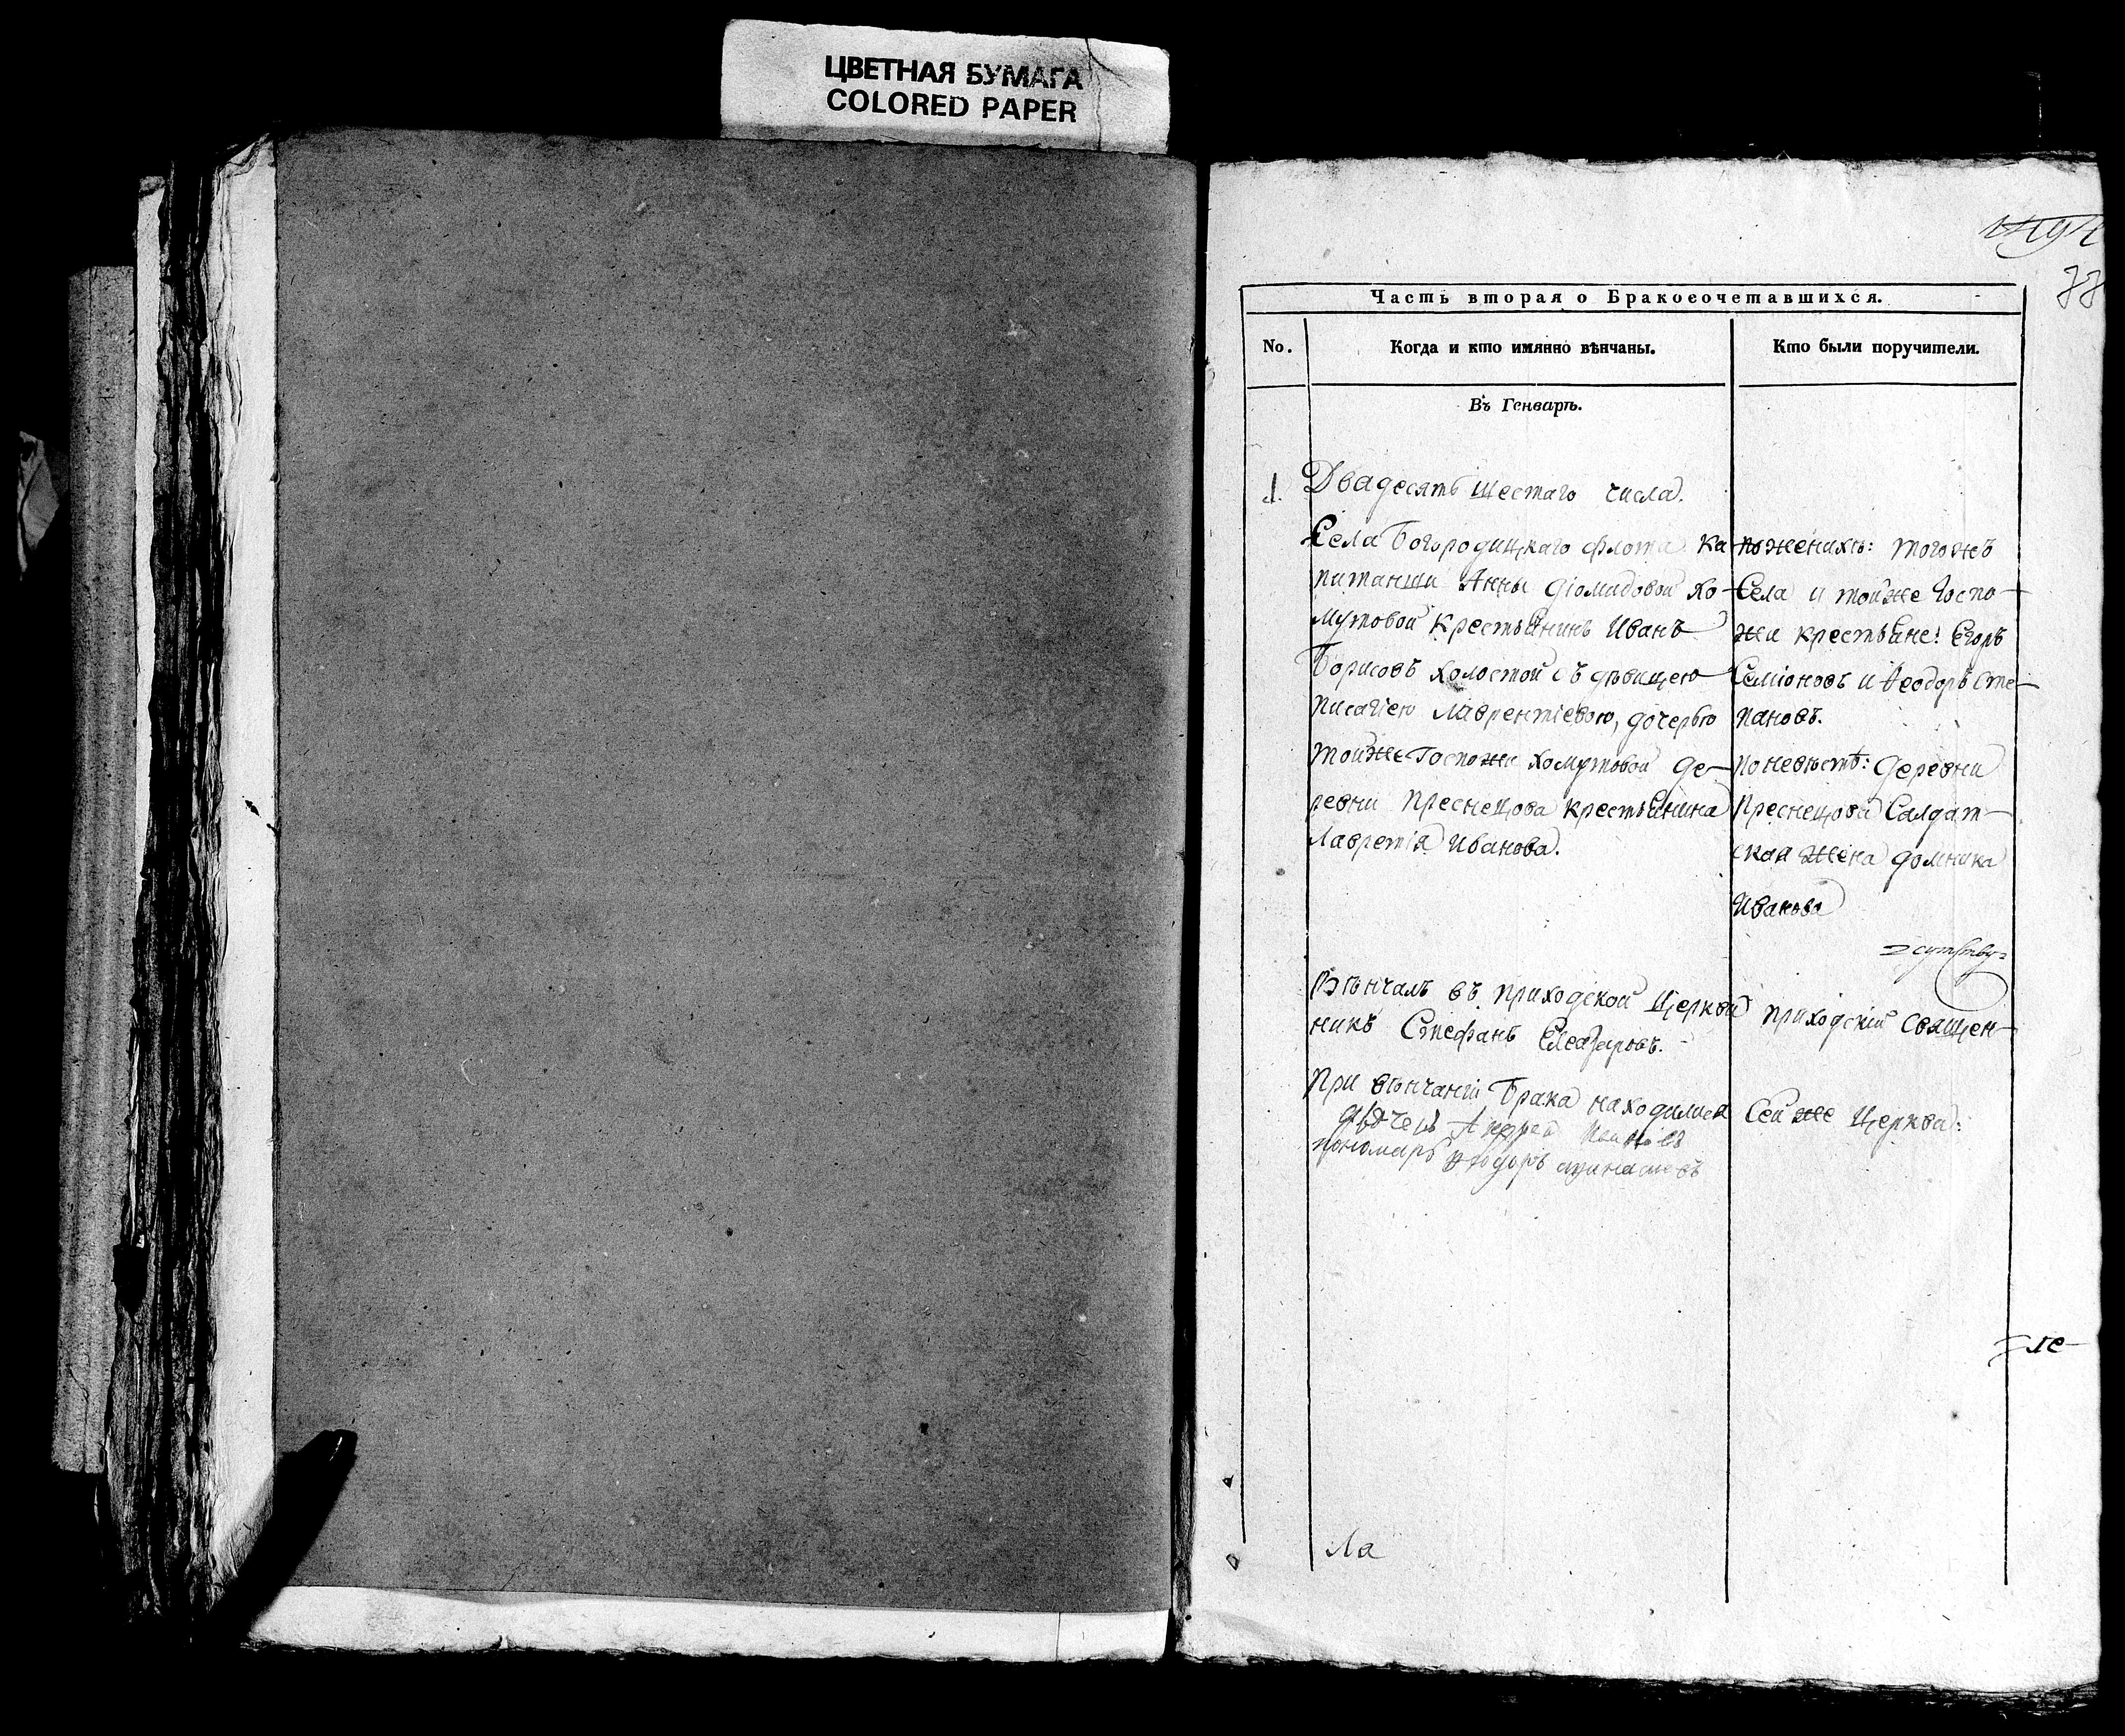 ЦВЕТНАЯ БУМАГА
COLORED PAPER
Часть вторая о Бракосочетавшихся.
No.
Когда и кто имянно вѣнчаны.
Кто были поручители.
Въ Генварѣ.
1. Двадесять шестаго числа.
Села Богородицкаго флота ка
питанши Анны Діомидовой Хо-
мутовой крестьянинъ Иванъ
Борисовъ холостой съ дѣвицею
Лаврентіевою, дочерью
тойже Госпожи Хомутовой де-
ревни Преснецова крестьянина
Лавретія Иванова.
по женихѣ: тогожъ
Села и тойже Госпо-
жи крестьяне: Егоръ
Семіоновъ и Ѳеодоръ Сте-
пановъ.
по невѣстѣ: деревни
Преснецова Салдат-
ская жена Домника
Иванова
Вѣнчалъ въ приходской Церкви приходскій Священ-
никъ Стефанъ Елеазаровъ.
При вѣнчаніи Брака находились Сей же Церкви:
дьячекъ Андрей Ивановъ
пономарь
Ла